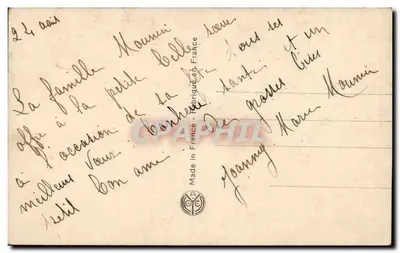 24 août
La famille Mounier
offre à la petite belle sœur
à l'occasion de sa fête tous ses
meilleurs vœux bonheur santé et un
petit bon ami. De grosses bises
Joanny Marie Mounier
Made in France - Fabriqué en France
CPHIL